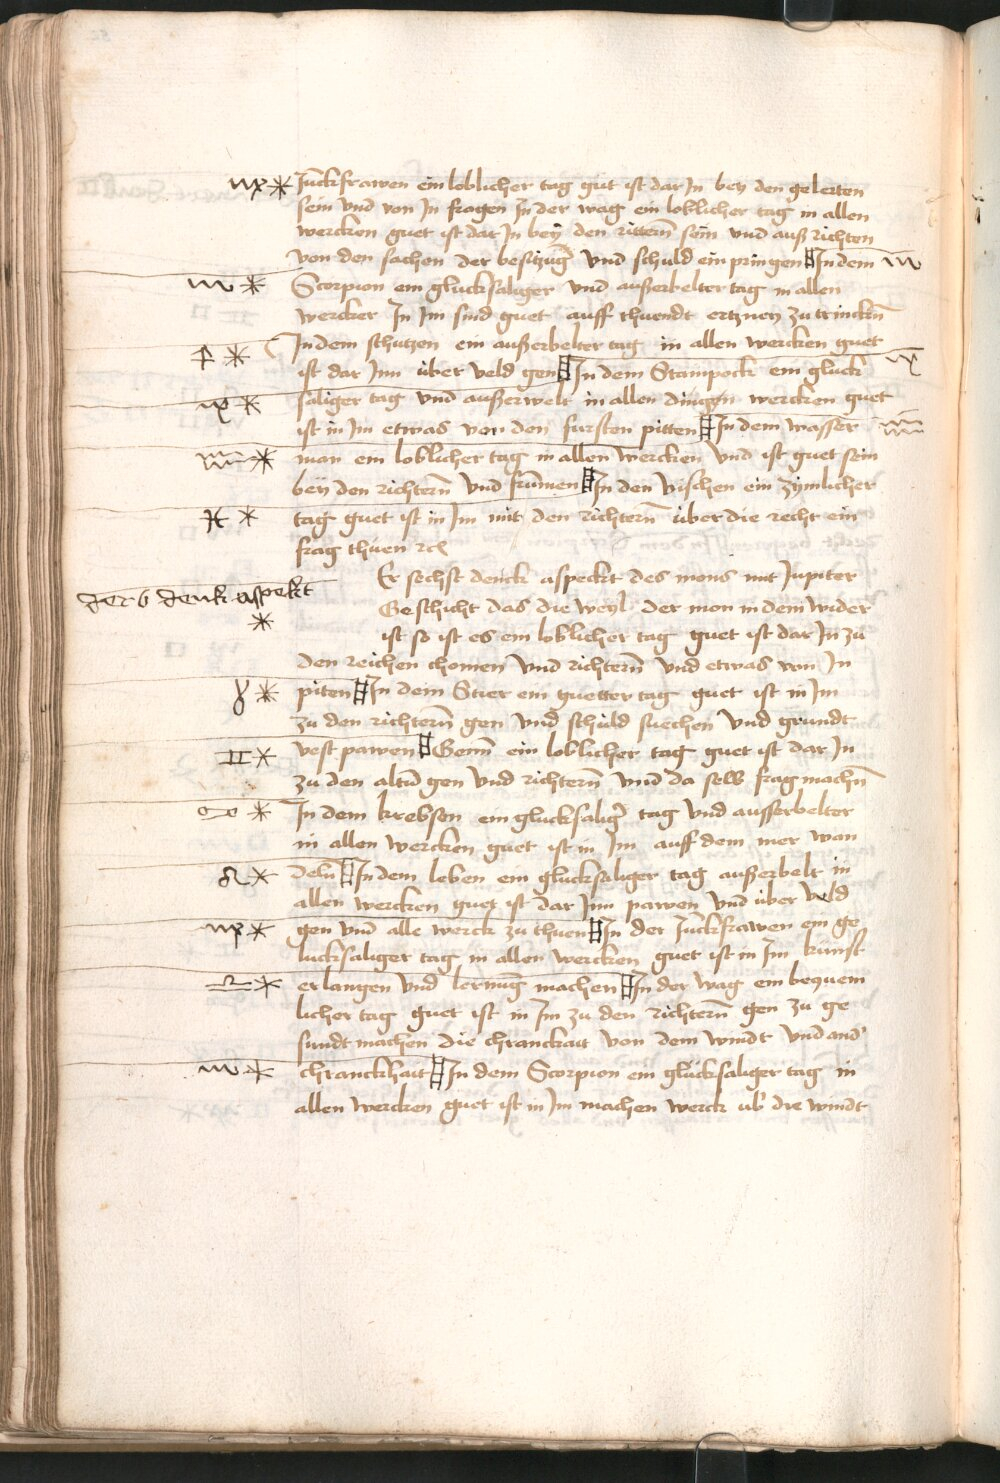 ♍ ✶ Junckfrawen ein loblicher tag gut ist dar Jn bey den gelerten
sein vnd von Jn fragen Jn der wag ein loblicher tag in allen
wercken guet ist dar Jn bey den rittern̄ sein vnd auß richten
von den sachen der besitzūg vnd schuld ein pringen Jn dem ♏
♏ ✶ Scorpion ein glucksaliger vnd außerbelter tag in allen
wercker Jn Jm sind guet auff thuendt ertzney zu trinckn̄
♐ ✶ Jn dem schutzen ein außerbelter tag in allen wercken guet
ist dar Jnn über veld gen Jn dem Stainpock ein gluck ♑
♑ ✶ saliger tag vnd außerwelt in allen dingen wercken guet
ist in Jm etwas von den fursten pitten Jn dem wasser ♒
♒ ✶ man ein loblicher tag in allen wercken vnd ist guet sein
bey den richtern̄ vnd frūmen Jn den vischen ein zymlicher
♓ ✶ tag guet ist in Jm mit den richtern̄ über die recht ein
frag thuen ꝛc
Er sechst denck aspeckt des mons mit Jupiter
der 6 denk aspekt ✶
Geschicht das die weyl der mon in dem wider
ist so ist es ein loblicher tag guet ist dar Jn zu
den reichen chomen vnd richtern̄ vnd etwas von Jn
♉ ✶ piten Jn dem Stier ein guetter tag guet ist in Jm
zu den richtern̄ gen vnd schuld suechen vnd grundt
♊ ✶ vest pawen Gemī ein loblicher tag guet ist dar Jn
zu den altn̄ gen vnd richtern̄ vnd da selb frag machn̄
♋ ✶ Jn dem krebsen ein glucksaligr̄ tag vnd ausserbelter
in allen wercken guet ist in Jm auff dem mer wan
♌ ✶ deln̄ Jn dem leben ein glucksaliger tag außerbelt in
allen wercken guet ist dar Jnn pawen vnd über veld
♍ ✶ gen vnd alle werck zu thuen Jn der Junckfrawen ein ge
lucksaliger tag in allen wercken guet ist in Jm kunst
♎ ✶ erlangen vnd lernūg machen Jn der wag ein bequem
licher tag guet ist in Jm zu den richtern̄ gen zu ge
sundt machen die chranckait von dem windt vnd and'
♏ ✶ chranckhait Jn dem Scorpion ein glücksaliger tag in
allen wercken guet ist in Jm machen werck ub' die windt